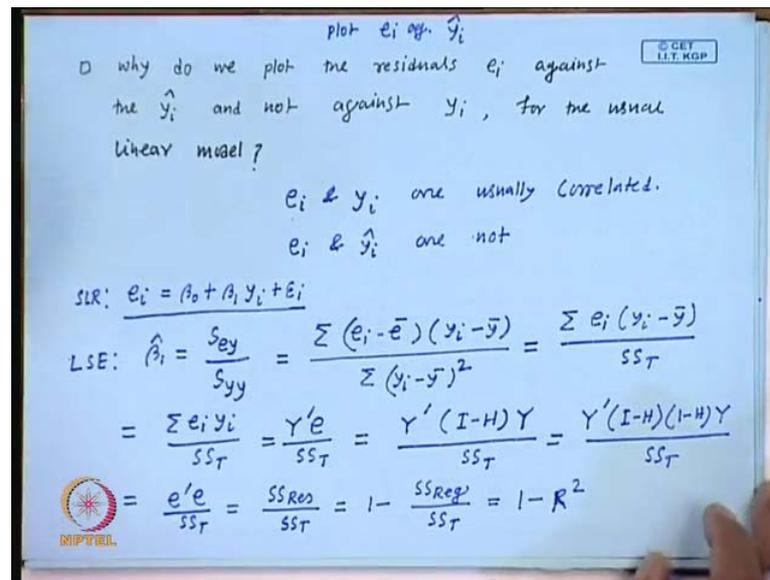 plot eᵢ ag. ŷᵢ
© CET
I.I.T. KGP
□ why do we plot the residuals eᵢ against
the ŷᵢ and not against yᵢ, for the usual
linear model?
eᵢ & yᵢ are usually correlated.
eᵢ & ŷᵢ are not
SLR: eᵢ = β₀ + β₁ yᵢ + εᵢ
LSE: β̂₁ = S_ey / S_yy = Σ (eᵢ - ē)(yᵢ - ȳ) / Σ (yᵢ - ȳ)² = Σ eᵢ (yᵢ - ȳ) / SS_T
= Σ eᵢ yᵢ / SS_T = Y'e / SS_T = Y'(I-H)Y / SS_T = Y'(I-H)(1-H)Y / SS_T
= e'e / SS_T = SS_Res / SS_T = 1 - SS_Reg / SS_T = 1 - R²
NPTEL